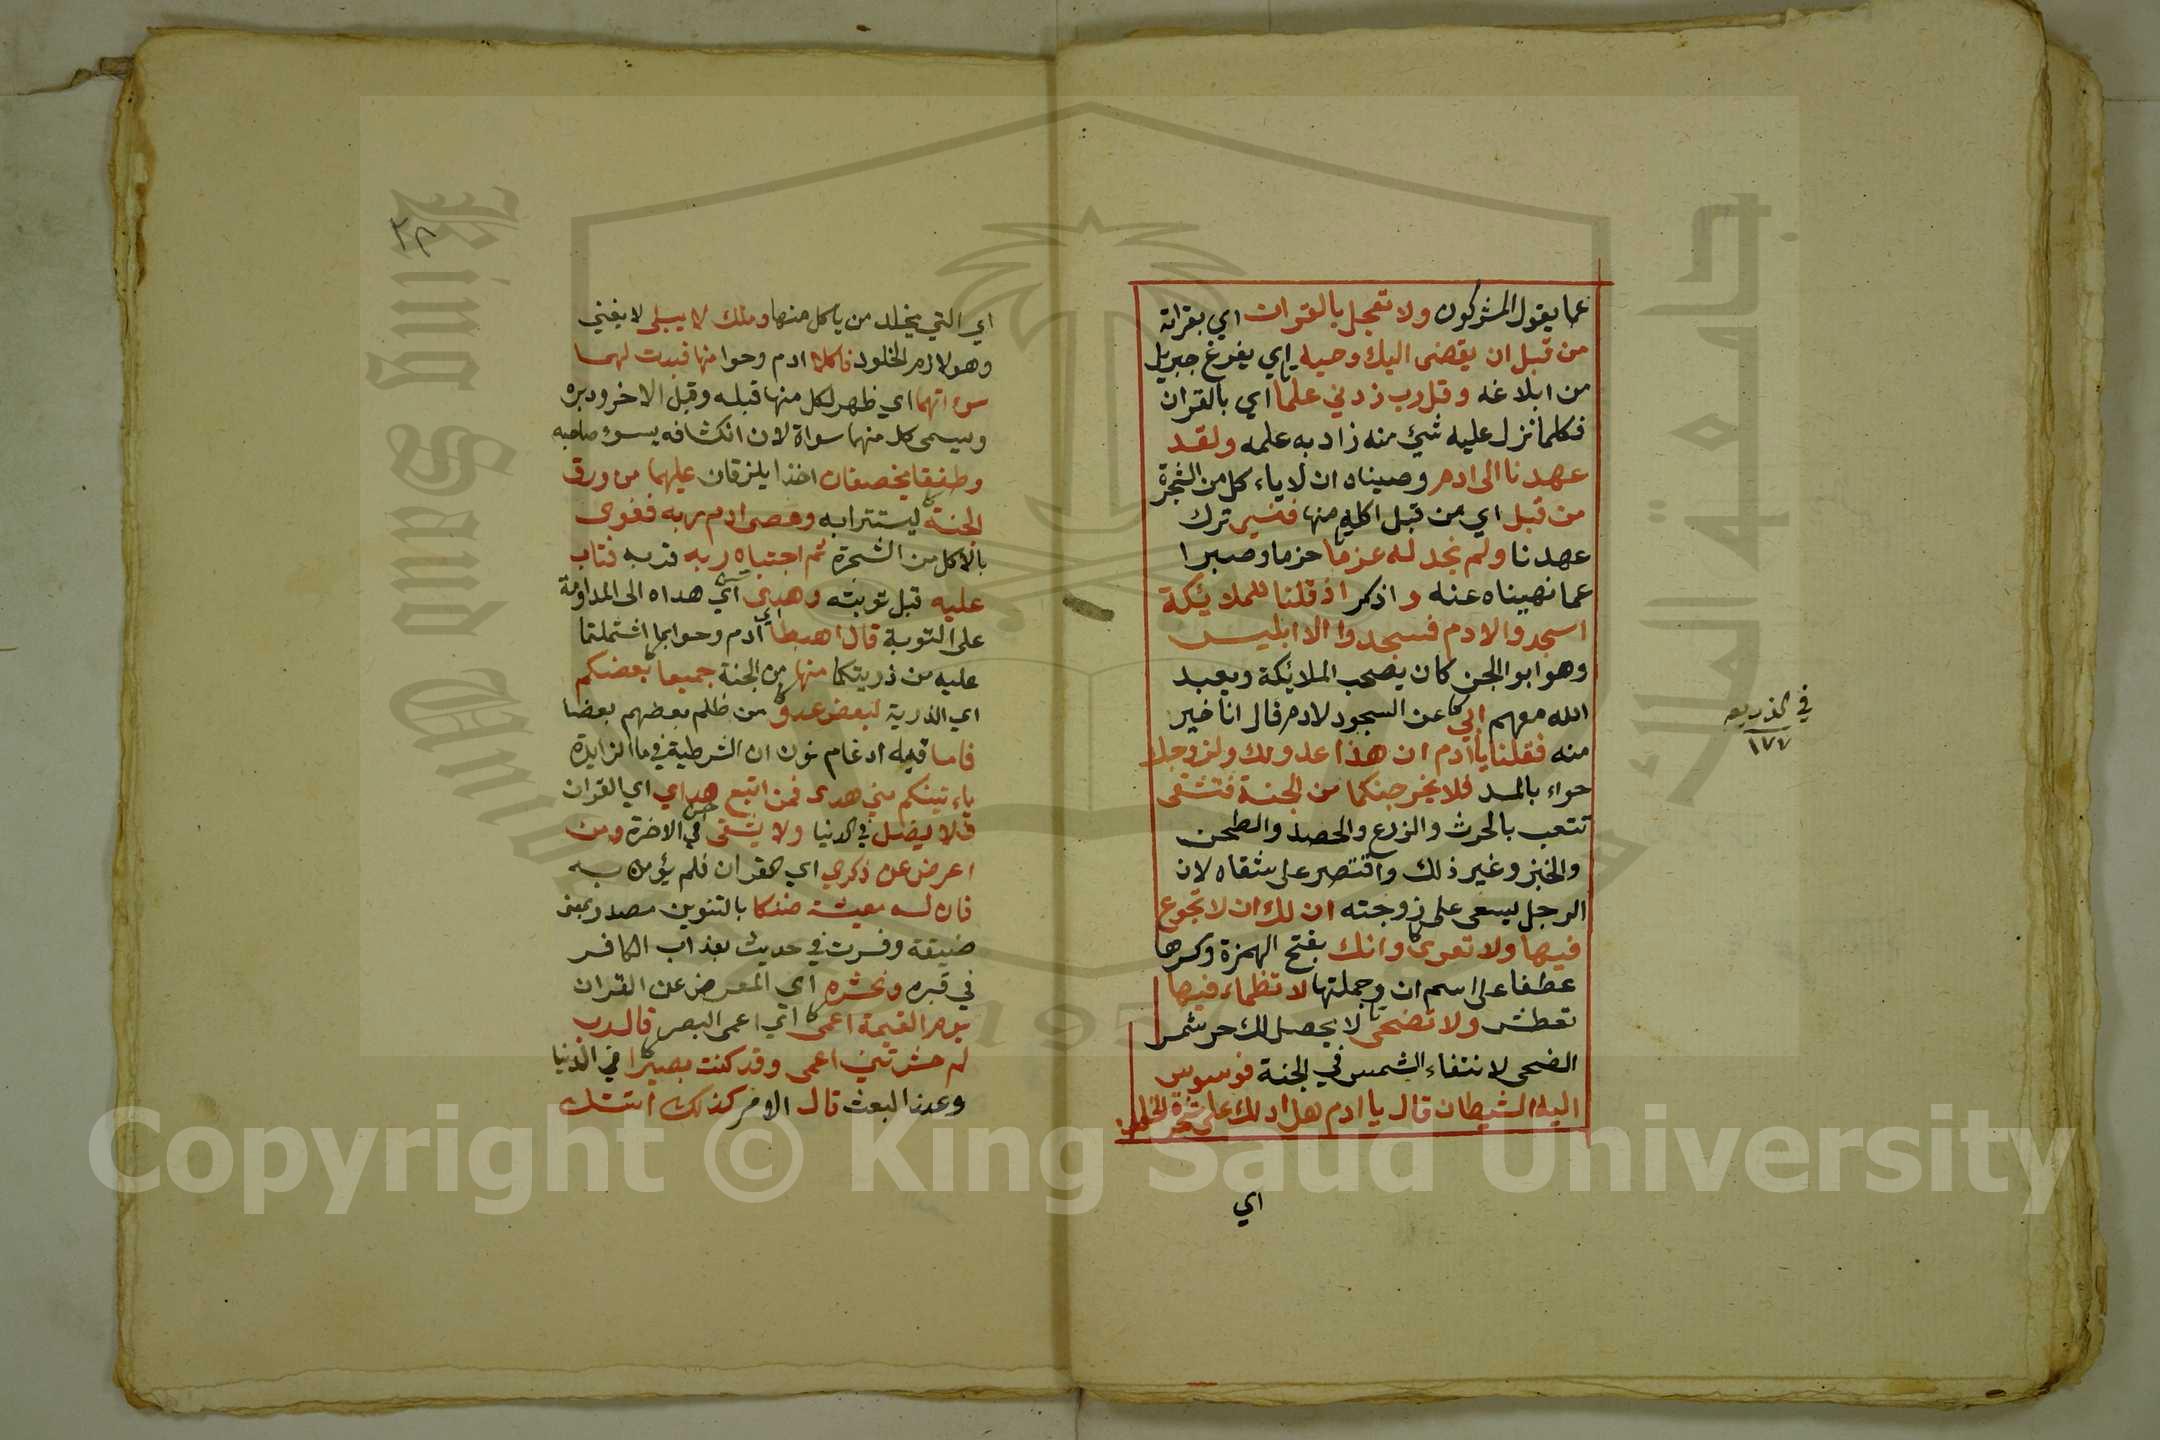 عما يقول المشركون ولا تعجل بالقران اي بقراته
من قبل ان يقضى اليك وحيه اي يفرغ جبريل
من ابلاغه وقل رب زدني علما اي بالقران
فكلما نزل عليه شئ منه زاد به علمه ولقد
عهدنا الى ادم وصيناه ان لا ياء كل من الشجرة
من قبل اي من قبل اكله منها فنسي ترك
عهدنا ولم نجد له عزما حزما وصبرا
عما نهيناه عنه واذكر اذ قلنا للملايئكة
اسجدوا لادم فسجدوا الا ابليس
وهو ابو الجن كان يصحب الملايئكة ويعبد
الله معهم ابي عن السجود لادم قال انا خير
منه فقلنا يا ادم ان هذا عدو لك ولزوجك
حواء بالمد فلا يخرجنكما من الجنة فتشقى
تتعب بالحرث والزرع والحصد والطحن
والخبز وغير ذلك واقتصر على شقاه لان
الرجل يسعى على زوجته ان لك ان لا تجوع
فيها ولا تعرى وانك بفتح الهمزة وكسرها
عطفا على اسم ان وجملتها لا تظماء فيها
تعطش ولا تضحى لا يحصل لك حر شمس
الضحى لانتفاء الشمس في الجنة فوسوس
اليه الشيطان قال يا ادم هل ادلك على شجرة الخلد
اي
في الذريعه
١٧٧
٣٨
اي التي يخلد من ياكل منها وملك لا يبلى لا يفنى
وهو لازم الخلود فاكلا ادم وحوا منها فبدت لهما
سوءاتهما اي ظهر لكل منها قبله وقبل الاخر ودبره
ويسمى كل منهما سواة لان انكشافه يسوء صاحبه
وطفقا يخصفان اخذا يلزقان عليهما من ورق
الجنة ليستترا به وعصى ادم ربه فغوى
بالاكل من الشجرة ثم اجتباه ربه قربه فتاب
عليه قبل توبته وهدى اي هداه الى المداومة
على التوبة قال اهبطا اي ادم وحوا بما اشتملتما
عليه من ذريتكما منها من الجنة جميعا بعضكم
اي الذرية لبعض عدو من ظلم بعضهم بعضا
فاما فيه ادغام نون ان الشرطية في ما الزايدة
ياء تينكم مني هدى فمن اتبع هداي اي القران
فلا يضل في الدنيا ولا يشقى في الاخرة ومن
اعرض عن ذكري اي القران فلم يؤمن به
فان له معيشة ضنكا بالتنوين مصدر بمعنى
ضيقة وفسرت في حديث بعذاب الكافر
في قبره ونحشره اي المعرض عن القران
يوم القيمة اعمى اي اعمى البصر قال رب
لم حشرتني اعمى وقد كنت بصيرا في الدنيا
وعند البعث قال الامر كذلك اتتك
King Saud University
جامعة الملك
1957
Copyright © King Saud University